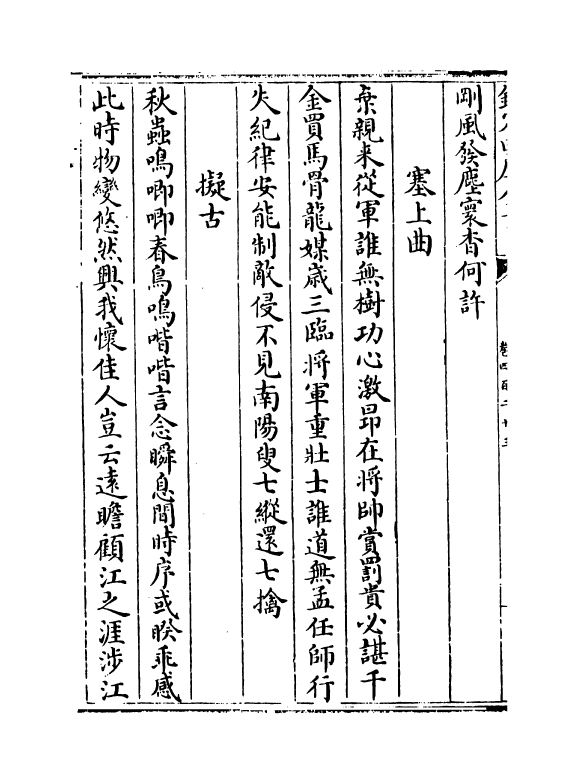 剛風發塵寰杳何許
塞上曲
棄親来從軍誰無樹功心激昂在将帥賞罰貴必諶千
金買馬骨龍媒歳三臨将軍重壯士誰道無孟任師行
失紀律安能制敵侵不見南陽叟七縱還七擒
擬古
秋蟲鳴唧唧春鳥鳴喈喈言念瞬息間時序或暌乖感
此時物變悠然興我懷佳人豈云遠瞻顧江之涯涉江